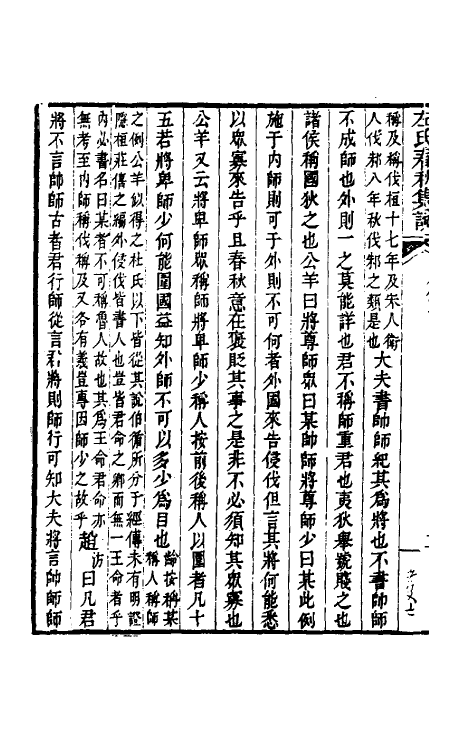 左氏春秋集說
稱及稱伐桓十七年及宋人衛
人伐邾八年秋伐邾之類是也
大夫書帥師紀其為將也不書帥師
不成師也外則一之莫能詳也君不稱師重君也夷狄舉號賤之也
諸侯稱國狄之也公羊曰將尊師眾曰某帥師將尊師少曰某此例
施于内師則可于外則不可何者外國來告侵伐但言其將何能悉
以眾寡來告乎且春秋意在褒貶其事之是非不必須知其眾寡也
公羊又云將卑師眾稱師將卑師少稱人按前後稱人以圍者凡十
五若將卑師少何能圍國益知外師不可以多少為目也
論按稱某
稱人稱師
之例公羊似得之杜氏以下皆從其說伯循所分于經傳未有明證
隱桓莊僖之編外侵伐皆書人也豈皆君命之卿而無一王命者乎
内必書名曰某者不可稱魯人故也其為王命君命亦
無考至内師稱伐稱及又各有義豈專因師少之故乎
趙汸曰凡君
將不言帥師古者君行師從言君將則師行可知大夫將言帥師師